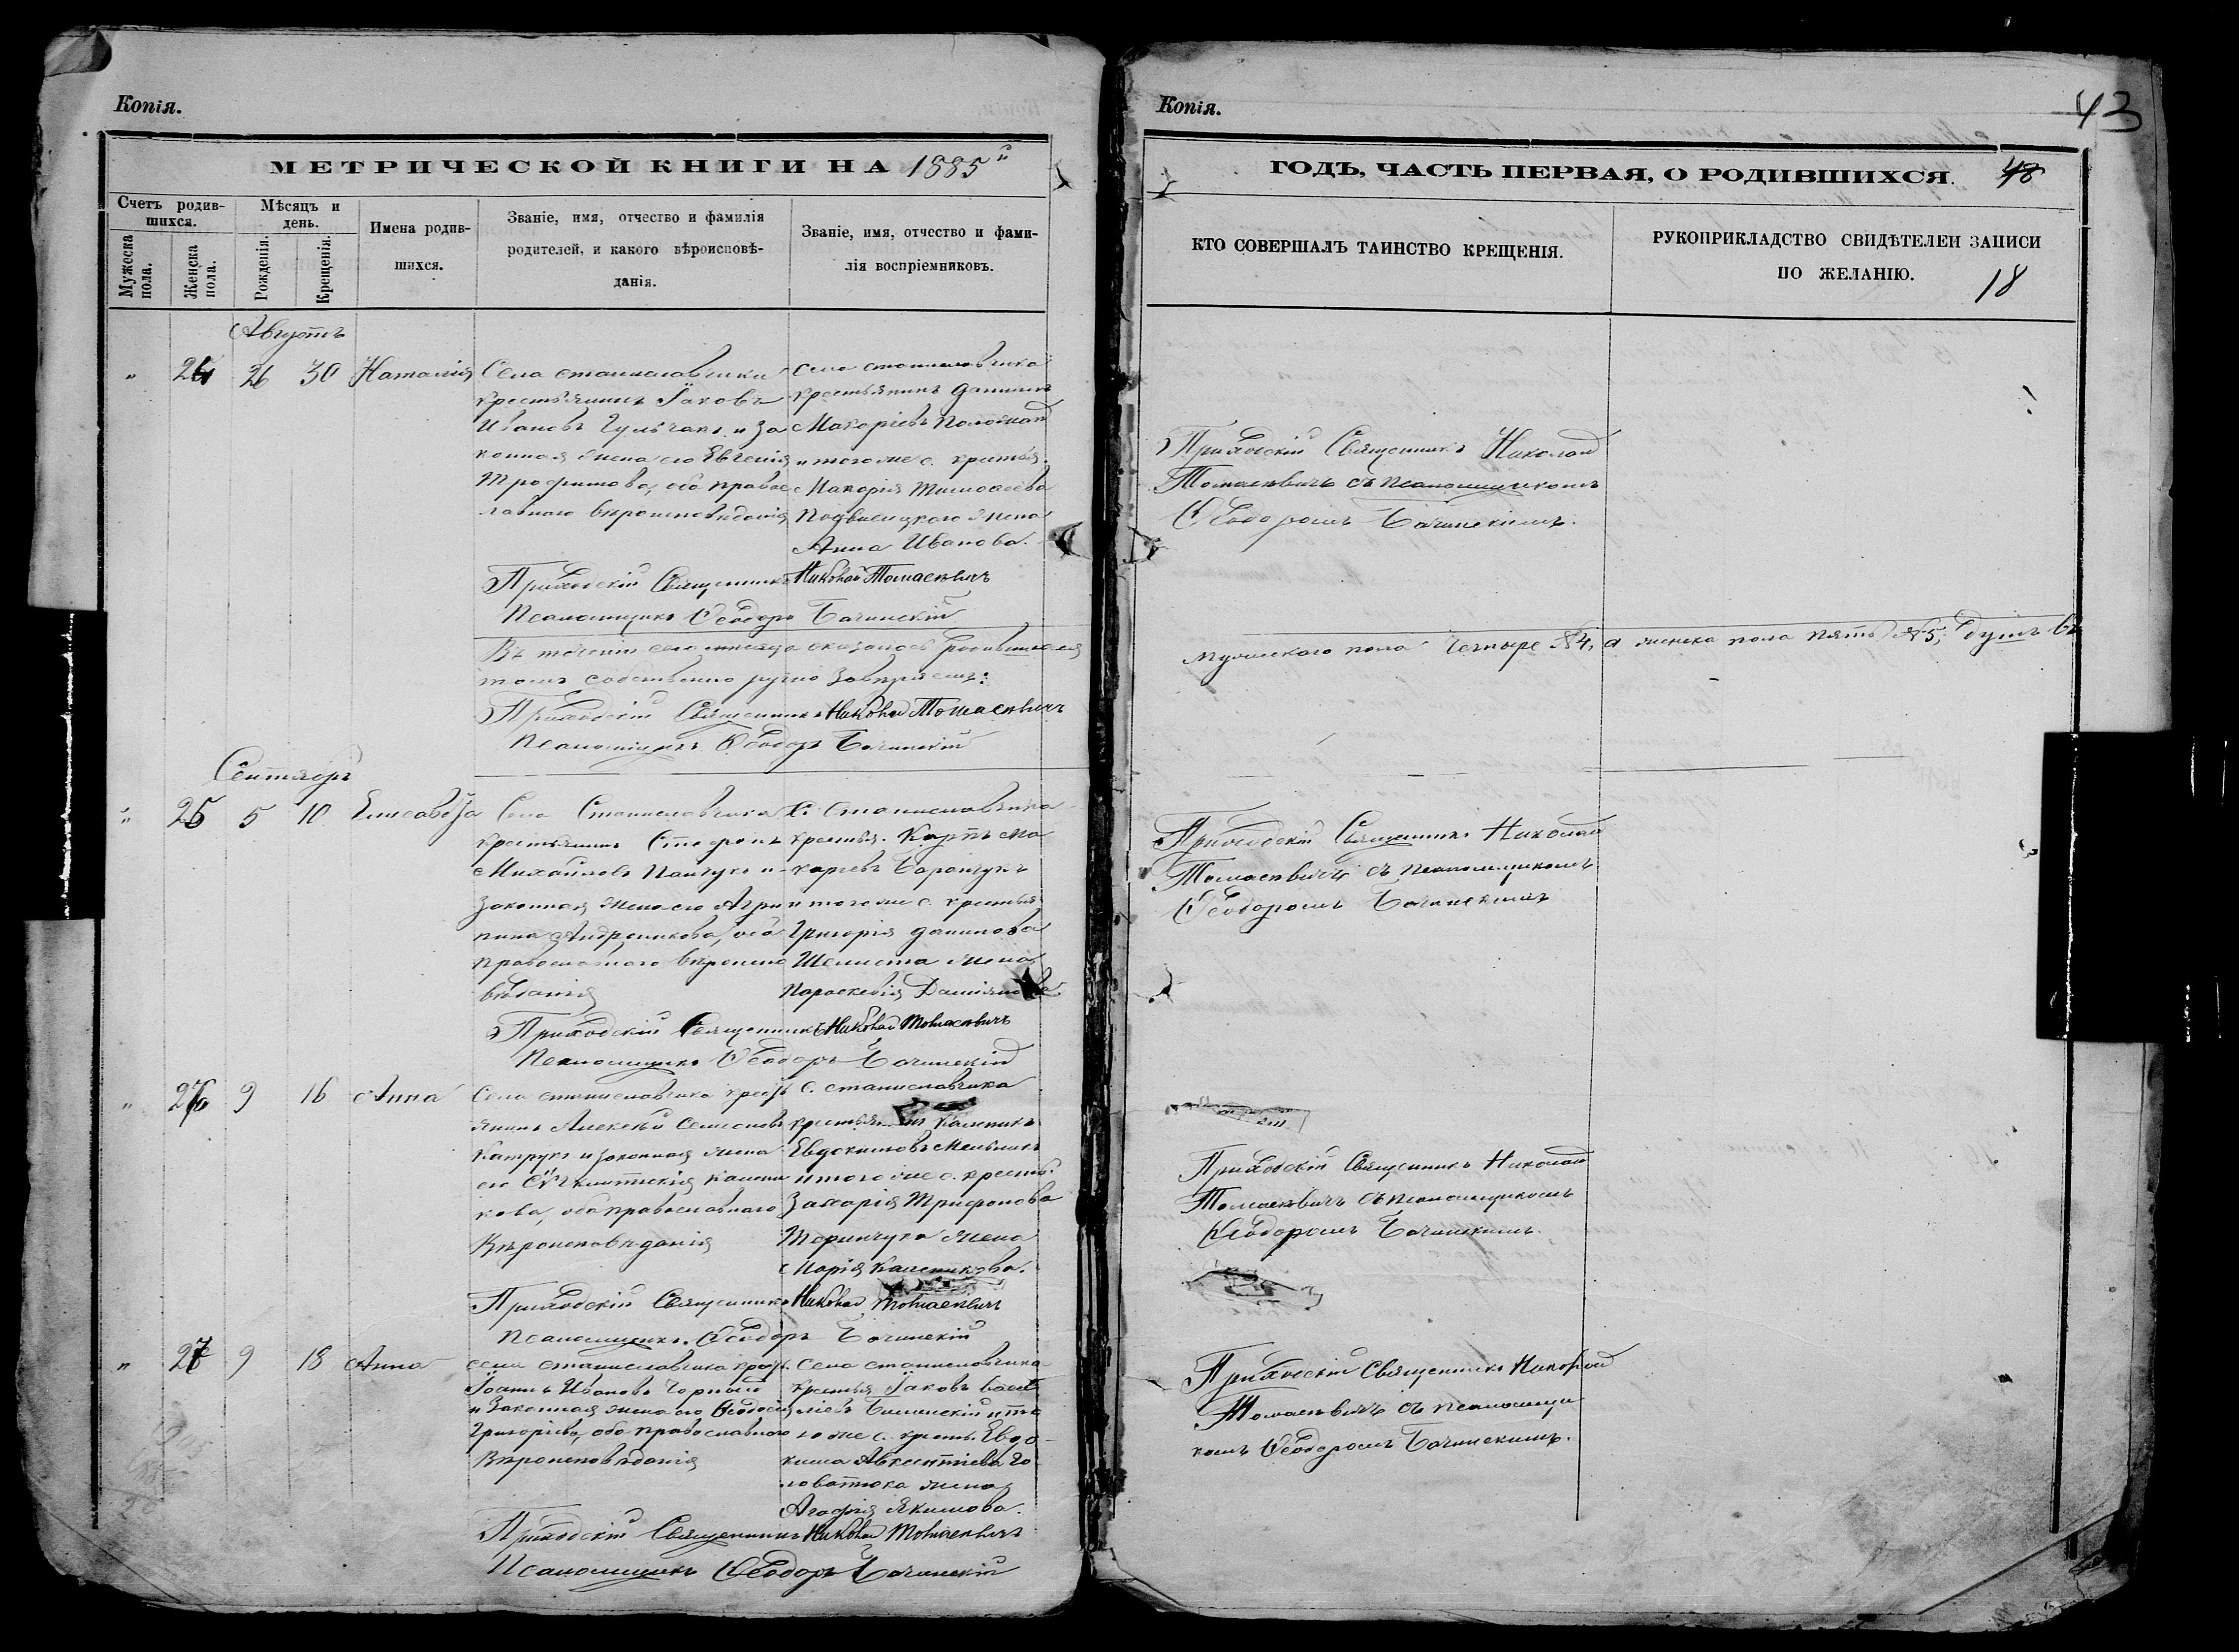 Копія.
МЕТРИЧЕСКОЙ КНИГИ НА 1885й
Счетъ родив-
шихся.
Мужеска
пола.
Женска
пола.
Мѣсяцъ и
день.
Рожденія.
Крещенія.
Имена родив-
шихся.
Званіе, имя, отчество и фамилія
родителей, и какого вѣроисповѣ-
данія.
Званіе, имя, отчество и фами-
лія воспріемниковъ.
Августъ
" 24 26 30 Наталія
Села Станиславчика
крестьянинъ Іаковъ
Ивановъ Гульчакъ и за
конная жена его Евгенія
Трофимова, оба правос
лавнаго вѣроисповѣданія
Села Станиславчика
крестьянинъ Даніилъ
Макаріевъ
и того же с. крестья.
Макарія Тимофеева
Подвысоцкаго жена
Анна Иванова.
Приходскій Священникъ Николай Томасевичъ
Псаломщикъ Ѳеодоръ Бачинскій
Въ теченіи сего мѣсяца оказалось родившихся
томъ собственно ручно завѣряемъ:
Приходскій Священникъ Николай Томасевичъ
Псаломщикъ Ѳеодоръ Бачинскій
Сентябрь
" 25 5 10 Елисавета
Села Станиславчика
крестьянинъ Стефанъ
Михайловъ Панчукъ и
законная жена его Агрип
пина Андроникова, оба
православнаго вѣроиспо
вѣданія
С. Станиславчика
крестья. Карпъ Ма
карьевъ Баранчукъ
и того же с. крестья
Григорія Данилова
Шелиста жена
Параскевія Даміанова
Приходскій Священникъ Николай Томасевичъ
Псаломщикъ Ѳеодоръ Бачинскій
" 26 9 16 Анна
Села Станиславчика крест
янинъ Алексѣй Семеновъ
Катрукъ и законная жена
его Калени
кова, оба православнаго
Вѣроисповѣданія
С. Станиславчика
крестьянинъ Каленикъ
Евдокимовъ Мельникъ
и того же с. крестья.
Захарія Трифонова
Маринчука жена
Марія Каленикова.
Приходскій Священникъ Николай Томасевичъ
Псаломщикъ Ѳеодоръ Бачинскій
" 27 9 18 Анна
Села Станиславчика крест.
Іоаннъ Ивановъ Чорный
и Законная жена его Ѳеодосія
Григоріева, оба православнаго
Вѣроисповѣданія
Села Станиславчика
крестья Іаковъ Васи
ліевъ и то
го же с. крестья. Евдо
кима Авксентіева Го
ловатюка жена
Агафія Якимова.
Приходскій Священникъ Николай Томасевичъ
Псаломщикъ Ѳеодоръ Бачинскій
Копія.
43
ГОДЪ, ЧАСТЬ ПЕРВАЯ, О РОДИВШИХСЯ. 48
КТО СОВЕРШАЛЪ ТАИНСТВО КРЕЩЕНІЯ.
РУКОПРИКЛАДСТВО СВИДѢТЕЛЕЙ ЗАПИСИ
ПО ЖЕЛАНІЮ.
18
Приходскій Священникъ Николай
Томасевичъ съ псаломщикомъ
Ѳеодоромъ Бачинскимъ.
Мужескаго пола четыре №4, а женска пола пять №5, душъ въ
Приходскій Священникъ Николай
Томасевичъ съ псаломщикомъ
Ѳеодоромъ Бачинскимъ
Приходскій Священникъ Николай
Томасевичъ съ псаломщикомъ
Ѳеодоромъ Бачинскимъ.
Приходскій Священникъ Николай
Томасевичъ съ псаломщи
комъ Ѳеодоромъ Бачинскимъ.